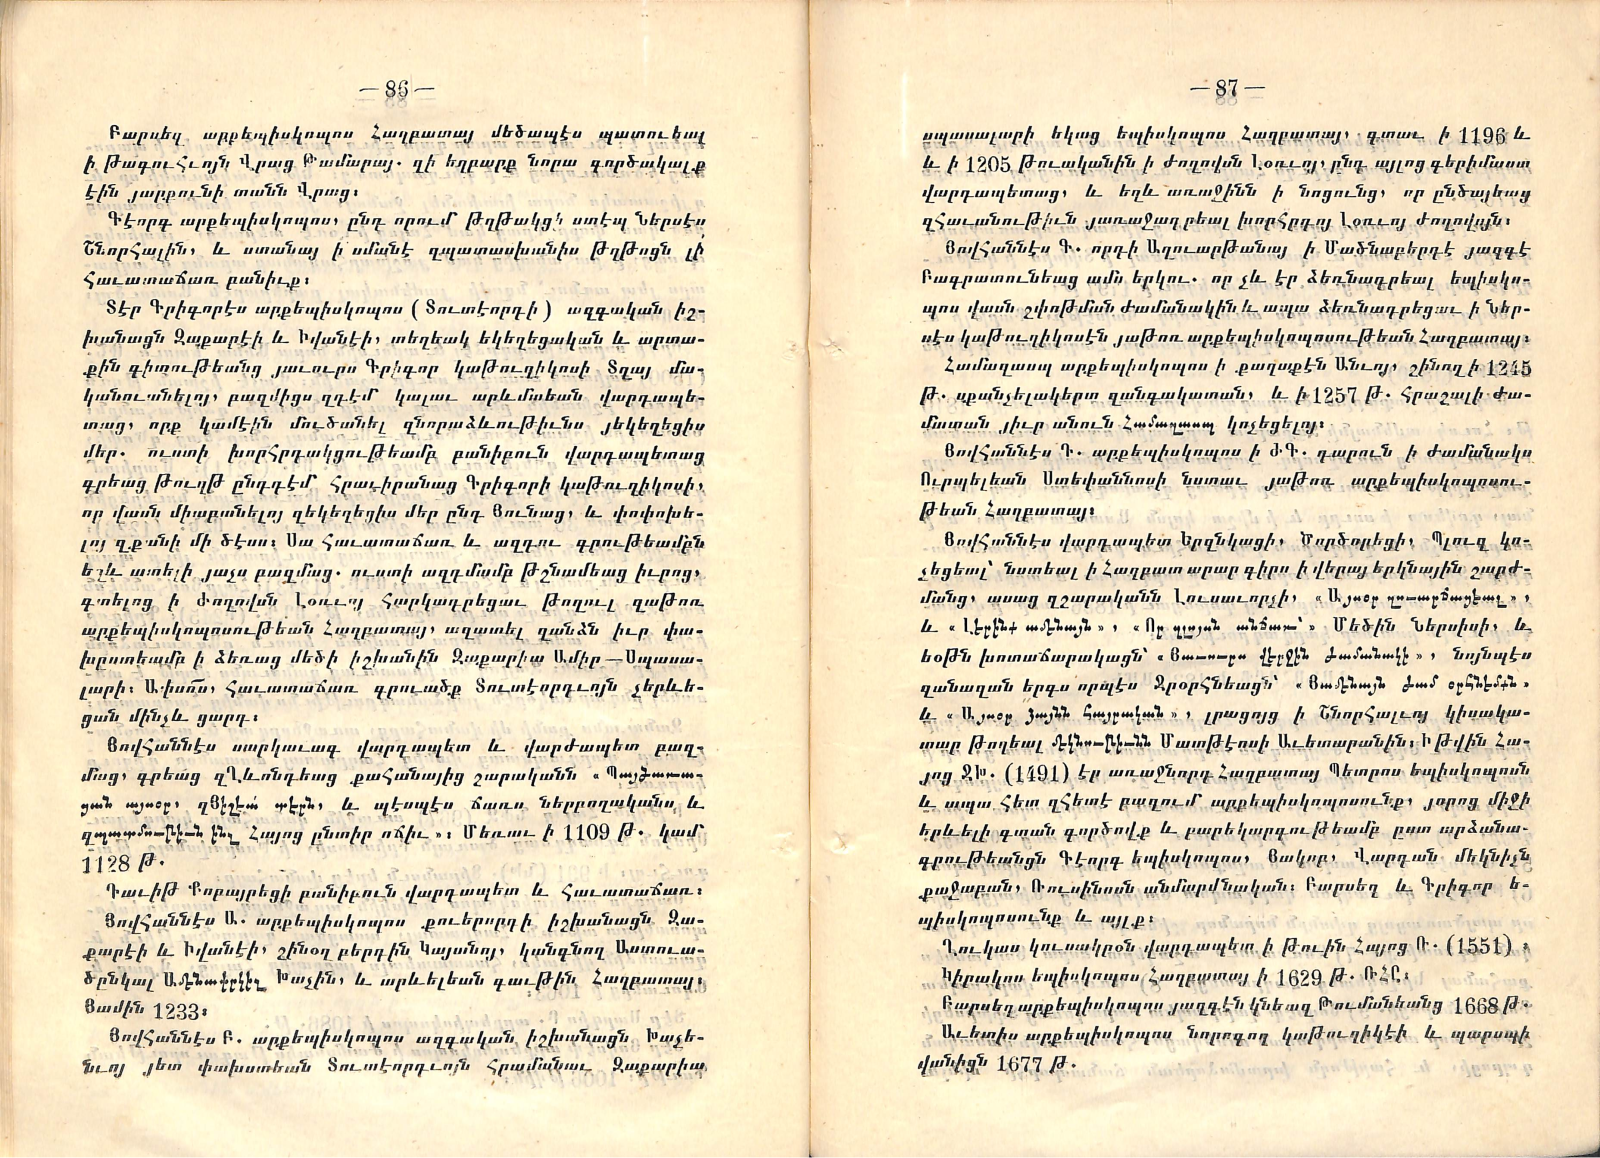 — 86 —
Բարսեղ արքեպիսկոպոս Հաղբատայ մեծապէս պատուեալ
ի թագուհւոյն Վրաց Թամարայ. զի եղբարք նորա գործակալք
էին յարքունի տանն Վրաց։
Գէորգ արքեպիսկոպոս, ընդ որում թղթակցէ ստէպ Ներսէս
Շնորհալին, և ստանայ ի սմանէ զպատասխանիս թղթոցն լի
հաւատաճառ բանիւք։
Տէր Գրիգորէս արքեպիսկոպոս (Տուտէորդի) ազգական իշ-
խանացն Զաքարէի և Իվանէի, տեղեակ եկեղեցական և արտա-
քին գիտութեանց յաւուրս Գրիգոր կաթուղիկոսի Տղայ մա-
կանուանելոյ, բազմիցս զդէմ կալաւ արևմտեան վարդապե-
տաց, որք կամէին մուծանել զնորաձևութիւնս յեկեղեցիս
մեր. ուստի խորհրդակցութեամբ բանիբուն վարդապետաց
գրեաց թուղթ ընդդէմ հրաւիրանաց Գրիգորի կաթուղիկոսի,
որ վասն միաբանելոյ զեկեղեցիս մեր ընդ Յունաց, և փոփոխե-
լոյ զքանի մի ծէսս։ Սա հաւատաճառ և ազդու գրութեամբն
եղև ատելի յաչս բազմաց. ուստի ազդմամբ թշնամեաց իւրոց,
գտելոց ի ժողովսն Լօռւոյ հարկադրեցաւ թողուլ զաթոռ
արքեպիսկոպոսութեան Հաղբատայ, ազատել զանձն իւր փա-
խըստեամբ ի ձեռաց մեծի իշխանին Զաքարիա Ամիր—Սպասա-
լարի։ Այսու, հաւատաճառ գրուածք Տուտէորդւոյն չերևե-
ցան մինչև ցարդ։
Յովհաննէս սարկաւագ վարդապետ և վարժապետ բազ-
մաց, գրեաց զՂևոնդեաց քահանայից շարականն «Պայծառա-
ցան այսօր, զՅիշէա տէրն, և պէսպէս ճառս ներբողականս և
զպատմութիւն ինչ Հայոց ընտիր ոճիւ»։ Մեռաւ ի 1109 թ. կամ
1128 թ.
Դաւիթ Քոբայրեցի բանիբուն վարդապետ և հաւատաճառ։
Յովհաննէս Ա. արքեպիսկոպոս քուերորդի իշխանացն Զա-
քարէի և Իվանէի, շինօղ բերդին Կայանոյ, կանգնող Աստուա-
ծընկալ Ամենափրկիչ Խաչին, և արևելեան գաւթին Հաղբատայ։
Յամին 1233։
Յովհաննէս Բ. արքեպիսկոպոս ազգական իշխանացն Խաչե-
նւոյ յետ փախստեան Տուտէորդւոյն հրամանաւ Զաքարիա
— 87 —
սպասալարի եկաց եպիսկոպոս Հաղբատայ, գտաւ ի 1196 և
և ի 1205 թուականին ի ժողովսն Լօռւոյ, ընդ այլոց գերիմաստ
վարդապետաց, և եղև առաջինն ի նոցունց, որ ընծայեաց
զհաւանութիւն յառաջադրեալ խորհրդոյ Լօռւոյ ժողովոյն։
Յովհաննէս Գ. որդի Աղուարթանայ ի Մածնաբերդէ յազգէ
Բագրատունեաց ամս երկու. որ չև էր ձեռնադրեալ եպիսկո-
պոս վասն շփոթման ժամանակին և ապա ձեռնադրեցաւ ի Ներ-
սէս կաթուղիկոսէն յաթոռ արքեպիսկոպոսութեան Հաղբատայ։
Համազասպ արքեպիսկոպոս ի քաղաքէն Անւոյ, շինող ի 1245
թ. սքանչելակերտ զանգակատան, և ի 1257 թ. հրաշալի ժա-
մատան յիւր անուն Համազասպ կոչեցելոյ։
Յովհաննէս Դ. արքեպիսկոպոս ի ԺԳ. դարուն ի ժամանակս
Ուրպելեան Ստեփաննոսի նստաւ յաթոռ արքեպիսկոպոսու-
թեան Հաղբատայ։
Յովհաննէս վարդապետ Երզնկացի, Ծործորեցի, Պլուզ կո-
չեցեալ՝ նստեալ ի Հաղբատ արար գիրս ի վերայ երկնային շարժ-
մանց, ասաց զշարականն Լուսաւորչի, «Այսօր զուարճացեալ»,
և «Լերինք ամենայն», «Որ զլոյսն անճառ՝» Մեծին Ներսիսի, և
եօթն խոտաճարակացն՝ «Յաւուրս վերջին ժամանակի», նոյնպէս
զանազան երգս որպէս Ջրօրհնեացն՝ «Յամենայն ժամ օրհնեմքն»
և «Այսօր ձայնն հայրական», լրացոյց ի Շնորհալւոյ կիսակա-
տար թողեալ մեկնութիւնն Մատթէոսի Աւետարանին։ Ի թվին Հա-
յոց ՋԽ. (1491) էր առաջնորդ Հաղբատայ Պետրոս եպիսկոպոսն
և ապա հետ զհետէ բազում արքեպիսկոպոսունք, յորոց միջի
երևելի գտան գործովք և բարեկարգութեամբ ըստ արձանա-
գրութեանցն Գէորգ եպիսկոպոս, Յակոբ, Վարդան մեկնիչն
քաջաբան, Ռուսինոսն անմարմնական։ Բարսեղ և Գրիգոր ե-
պիսկոպոսունք և այլք։
Ղուկաս կուսակրօն վարդապետ ի թուին Հայոց Ռ. (1551)։
Կիրակոս եպիսկոպոս Հաղբատայ ի 1629 թ. ՌՀԸ։
Բարսեղ արքեպիսկոպոս յազգէն կնեազ Թումանեանց 1668 թ.
Աւետիս արքեպիսկոպոս նորոգող կաթուղիկէի և պարսպի
վանիցն 1677 թ.